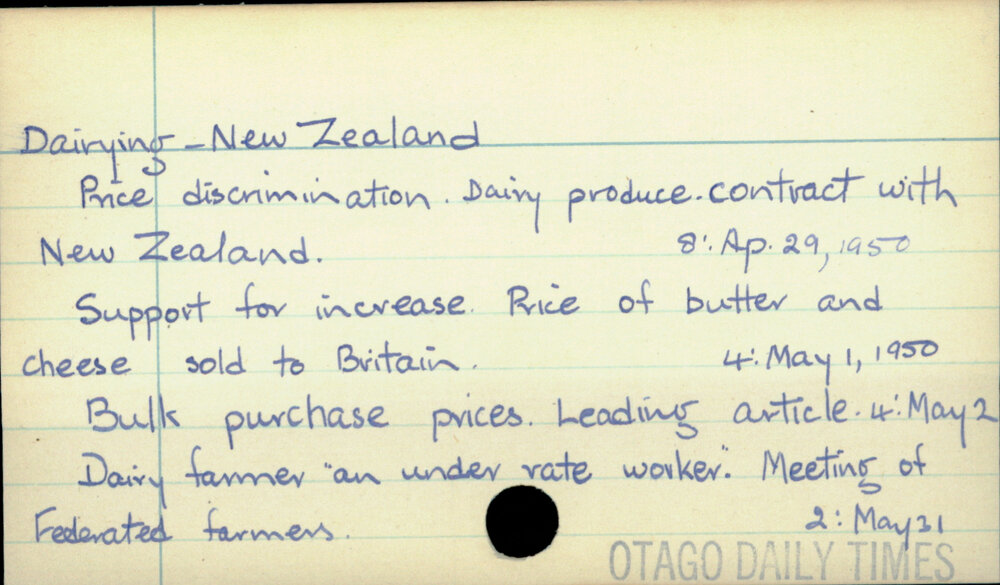 Dairying - New Zealand
Price discrimination. Dairy produce. contract with
New Zealand. 8: Ap. 29, 1950
Support for increase. Price of butter and
cheese sold to Britain. 4: May 1, 1950
Bulk purchase prices. Leading article. 4: May 2
Dairy farmer "an under rate worker." Meeting of
Federated farmers. 2: May 31
OTAGO DAILY TIMES